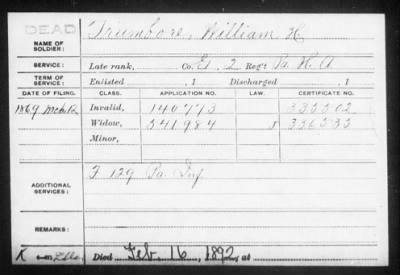 DEAD
NAME OF SOLDIER: Trumbore, William H
SERVICE: Late rank, Co. E, 2 Reg't Pa. H. A
TERM OF SERVICE: Enlisted , 1 Discharged , 1
DATE OF FILING. CLASS. APPLICATION NO. LAW. CERTIFICATE NO.
1869 Mch 12 Invalid, 140773 335502
Widow, 541984 J 336535
Minor,
ADDITIONAL SERVICES: F 129 Pa. Inf
REMARKS:
K Died Feb. 16, 1892, at